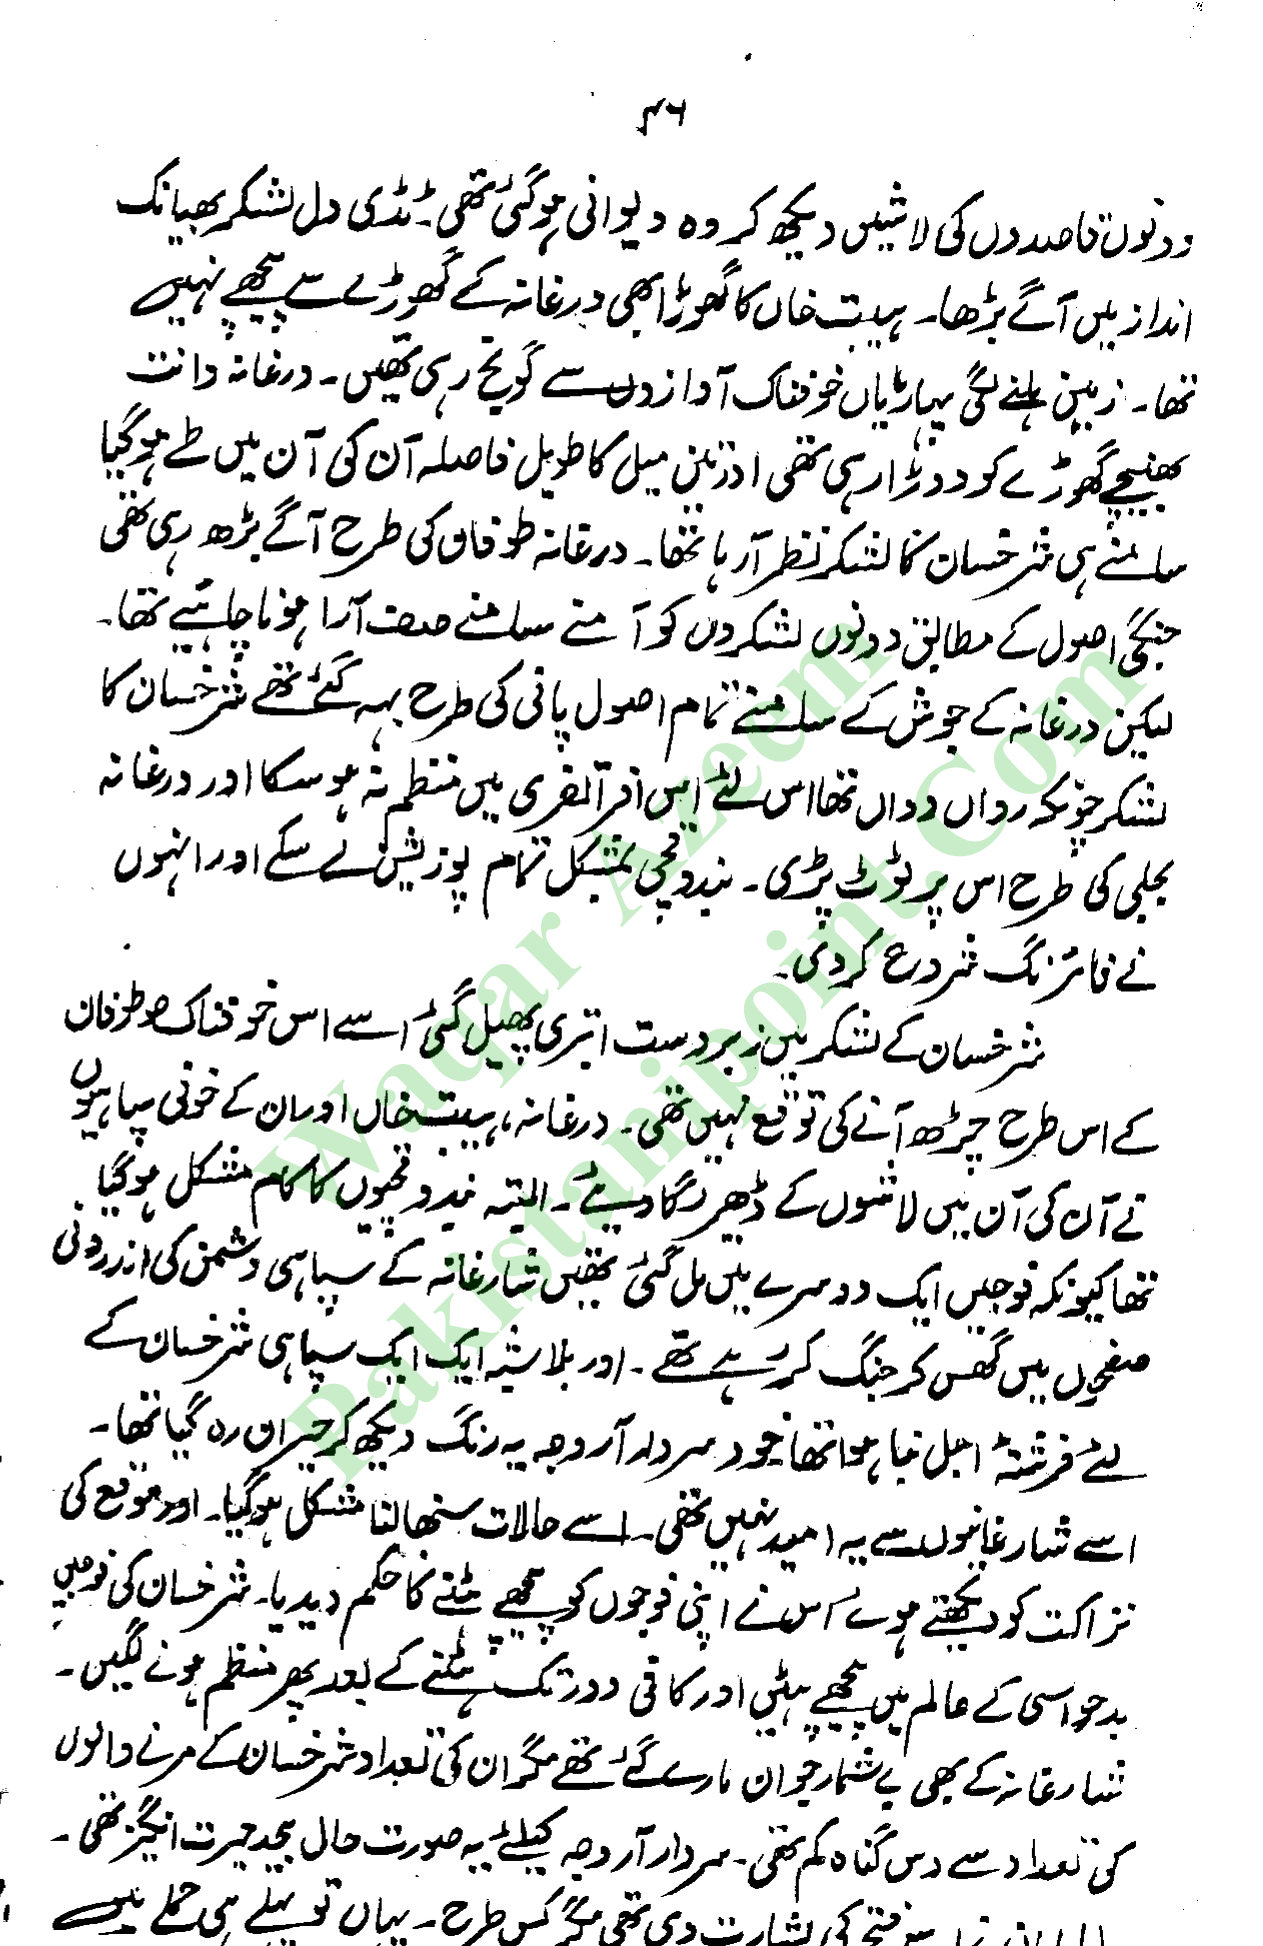 ۴۶
دونوں قاصدوں کی لاشیں دیکھ کر وہ دیوانی ہوگئی تھی۔ ٹڈی دل لشکر بھیانک
انداز میں آگے بڑھا۔ ہیبت خاں کا گھوڑا بھی درغانہ کے گھوڑے سے پیچھے نہیں
تھا۔ زمین ہلنے لگی پہاڑیاں خوفناک آوازوں سے گونج رہی تھیں۔ درغانہ دانت
بھینچے گھوڑے کو دوڑا رہی تھی اور تین میل کا طویل فاصلہ آن کی آن میں طے ہوگیا
سامنے ہی شرخسان کا لشکر نظر آرہا تھا۔ درغانہ طوفان کی طرح آگے بڑھ رہی تھی
جنگی اصول کے مطابق دونوں لشکروں کو آمنے سامنے صف آرا ہونا چاہئیے تھا۔
لیکن درغانہ کے جوش کے سامنے تمام اصول پانی کی طرح بہہ گئے تھے شرخسان کا
لشکر چونکہ رواں دواں تھا اس لئے اس افراتفری میں منتظم نہ ہوسکا اور درغانہ
بجلی کی طرح اس پر ٹوٹ پڑی۔ بندوقچی بمشکل تمام پوزیشن لے سکے اور انہوں
نے فائرنگ شروع کردی۔
شرخسان کے لشکر میں زبردست ابتری پھیل گئی اسے اس خوفناک طوفان
کے اس طرح چڑھ آنے کی توقع نہیں تھی۔ درغانہ، ہیبت خاں اور ان کے خونی سپاہیوں
نے آن کی آن میں لاشوں کے ڈھیر لگا دیئے۔ البتہ بندوقچیوں کا کام مشکل ہوگیا
تھا کیونکہ فوجیں ایک دوسرے میں مل گئی تھیں شارغانہ کے سپاہی دشمن کی اندرونی
صفوں میں گھس کر جنگ کر رہے تھے۔ اور بلاشبہ ایک ایک سپاہی شرخسان کے
لئے فرشتۂ اجل بنا ہوا تھا خود سردار آروجہ یہ رنگ دیکھ کر حیران رہ گیا تھا۔
اسے شارغانیوں سے یہ امید نہیں تھی۔ اسے حالات سنبھالنا مشکل ہوگیا۔ اور موقع کی
نزاکت کو دیکھتے ہوئے اس نے اپنی فوجوں کو پیچھے ہٹنے کا حکم دیدیا۔ شرخسان کی فوجیں
بدحواسی کے عالم میں پیچھے ہٹیں اور کافی دور تک ہٹنے کے بعد پھر منظم ہونے لگیں۔
شارغانہ کے بھی بے شمار جوان مارے گئے تھے مگر ان کی تعداد شرخسان کے مرنے والوں
کی تعداد سے دس گناہ کم تھی۔ سردار آروجہ کیلئے یہ صورت حال بیحد حیرت انگیز تھی۔
فتح کی بشارت دی تھی مگر کس طرح۔ یہاں تو پہلے ہی حملے میں
Waqar Azeem
Pakistanipoint.Com